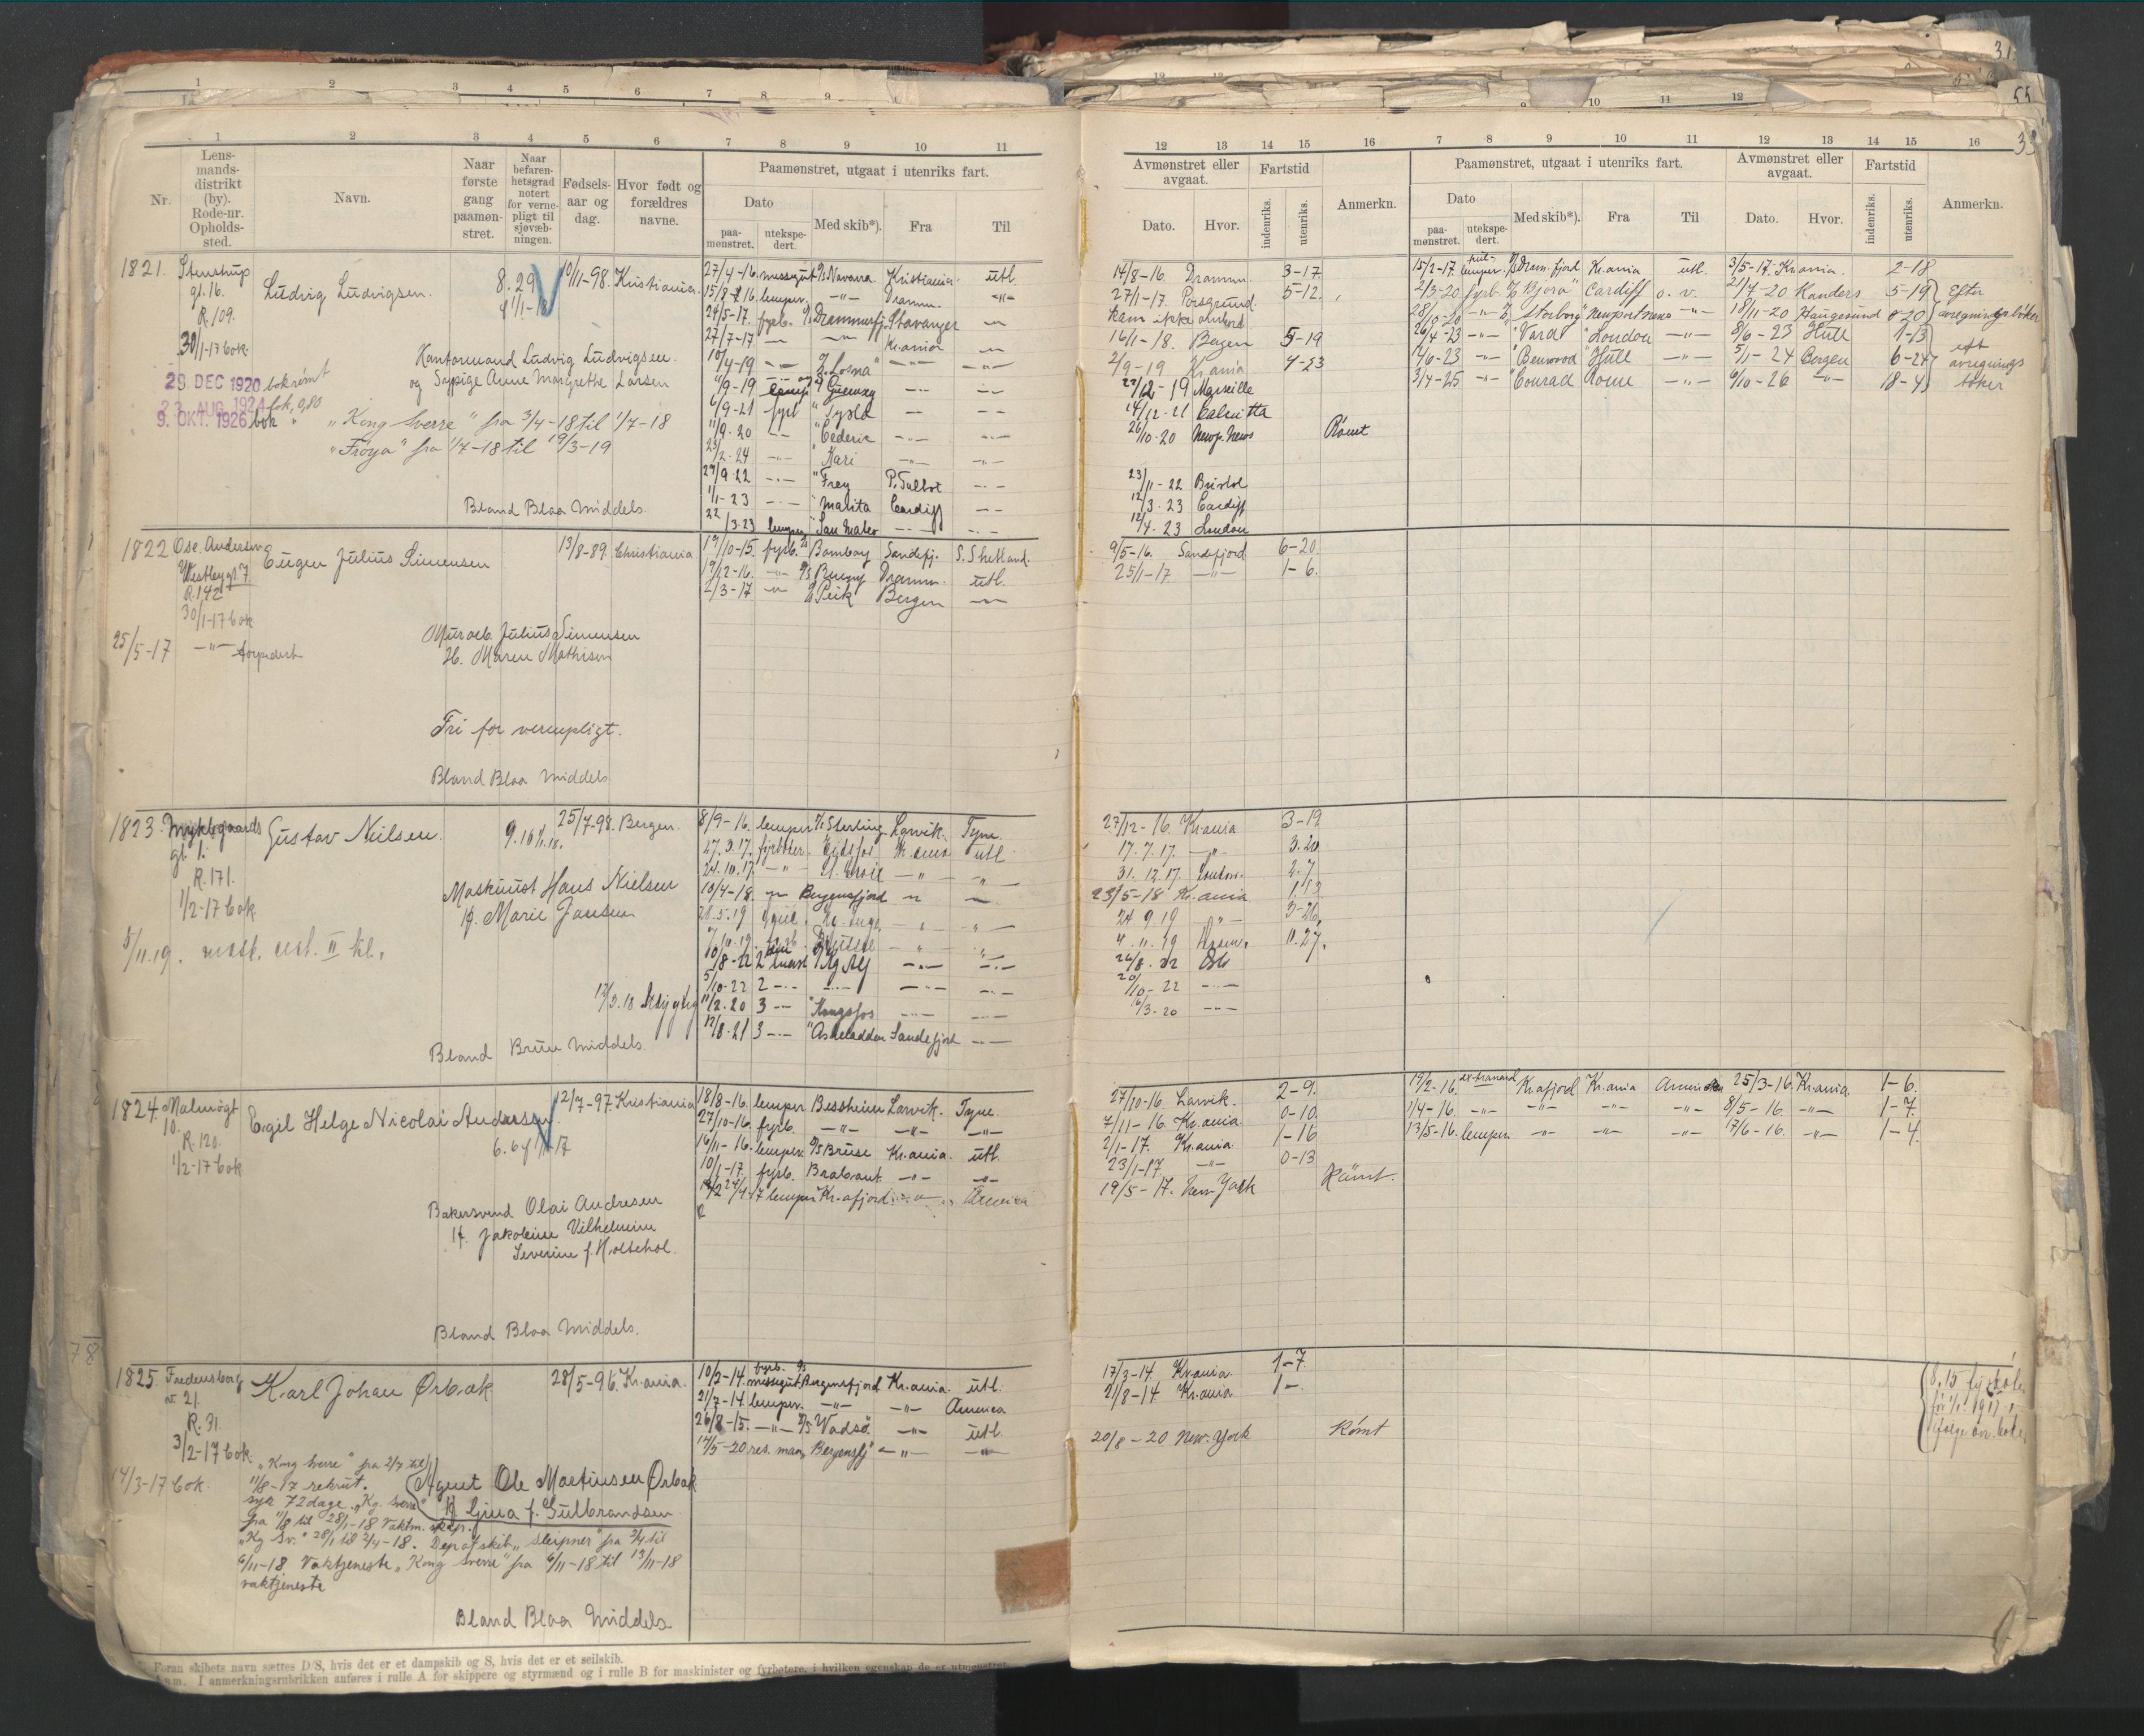 1 2 3 4 5 6 7 8 9 10 11
Nr.
Lens-
mands-
distrikt
(by).
Rode-nr.
Opholds-
sted.
Navn.
Naar
første
gang
paamøn-
stret.
Naar
befaren-
hetsgrad
notert
for verne-
pligt til
sjøvæb-
ningen.
Fødsels-
aar og
dag.
Hvor født og
forældres
navne.
Paamønstret, utgaat i utenriks fart.
Dato
paa-
mønstret.
utekspe-
dert.
Med skib*).
Fra
Til
12 13 14 15 16 7 8 9 10 11 12 13 14 15 16
Avmønstret eller
avgaat.
Dato.
Hvor.
Fartstid
indenriks.
utenriks.
Anmerkn.
Paamønstret, utgaat i utenriks fart.
Dato
paa-
mønstret.
utekspe-
dert.
Med skib*).
Fra
Til
Avmønstret eller
avgaat.
Dato.
Hvor.
Fartstid
indenriks.
utenriks.
Anmerkn.
1821. Stenstrup
gt. 16.
R. 109.
30/1-13 bok
Ludvig Ludvigsen.
8.29
10/11-98. Kristiania.
Kontormand Ludvig Ludvigsen.
og Sypige Anne Margrethe Larsen
29 DEC 1920 bok rømt
23 AUG 1924 bok 0,80
9. OKT. 1926 bok "
"Kong Sverre" fra 3/4-18 til 1/7-18
"Frøya" fra 1/7-18 til 19/3-19
Bland Blaa Middels.
27/4-16. messegut D/S Navarra Kristiania. utl.
15/8-16. lemper. -"- Dramm. -"-
24/5-17. fyrb. D/S Drammensfj. Stavanger -"-
27/7-17 -"- -"- Kr.ania -"-
10/4-19 -"- Losna -"- -"-
6/9-21 fyrb " Sysla
11/9-20 " Cederic
23/2-24 -"- " Kari
27/9-22 -"- " Frey P. Talbot
1/1-23 -"- " Malita Cardiff
22/3-23 lemper " San Mateo
14/8-16. Dramm. 3-17.
27/1-17. Porsgrund. 5-12.
kom ikke ombord
16/1-18. Bergen 5-19
2/9-19 Kr.ania 4-23
22/12-19 Marseille
14/12-21 Calcutta
26/10-20 Newp. News Rømt
23/11-22 Bristol
12/3-23 Cardiff
12/4-23 London
15/2-17. lemper. D/S Dram.fjord Kr.ania utl. 3/5-17. Kr.ania. 2-18
2/3-20 fyrb. "Bjora" Cardiff o. v. 21/7-20 Randers 5-19
28/10-20 -"- "Storborg" Newport News -"- 18/11-20 Haugesund 0-20
26/4-23 -"- "Vard" London -"- 8/6-23 Hull 1-13
14/6-23 -"- "Benwood" Hull -"- 5/1-24 Bergen 6-24
3/4-25 -"- "Conrad" Rouen -"- 6/10-26 -"- 18-4
Efter
avregningsbøker
eft
avregnings
bøker
1822 Osc. Andersen
Westbygt. 7
R. 142
30/1-17 bok
25/5-17 -"- torpedert
Eugen Julius Simensen
13/8-89. Christiania.
Murarb. Julius Simensen
H. Maren Mathisen
Fri for vernepligt.
Bland Blaa Middels.
19/10-15. fyrb. D/S Bombay Sandefj. S. Shetland.
19/12-16. -"- D/S Bunny Dramm. utl.
2/3-17 -"- D/S Peik Bergen -"-
9/5-16. Sandefjord 6-20.
25/1-17 -"- 1-6.
1823. Myklegaards
gt. 1.
R. 171.
1/2-17 bok.
Gustav Nielsen.
9.16 1/1.18.
25/7-98. Bergen.
Maskinist Hans Nielsen
H. Marie Jansen
5/11.19. mask. cert. II kl.
Bland Brune Middels.
8/9-16. lemper D/S Sterling Larvik. Tyne.
27.3.17. fyrbøter. Eidsfos Kr.ania utl.
24.10.17. -"- -"-
10/4-18. -"- Bergensfjord -"- -"-
10/8-22 2
5/10-22 2 -"-
11/2.20 3 -"- "Kongsfos
12/8.21 3 -"- "Askeladden Sandefjord
27/12-16. Kr.ania 3-19
17.7.17. -"- 3.20
31.12.17. London. 2.7
23/5-18 Kr.ania 1.13
24.9.19 -"- 3-26.
11.27.
26/8.22 Oslo
20/10-22 -"-
16/3-20 -"-
1824. Malmøgt
10.
R. 120.
1/2-17 bok
Egil Helge Nicolai Andersen.
12/7-97. Kristiania
Bakersvend Olai Andresen
H. Jakobine Vilhelmine
Severine f. Holtehol.
Bland Blaa Middels.
18/8-16. lemper Bessheim Larvik. Tyne.
27/10-16. fyrb. -"- -"- -"-
16/11-16. lemper. D/S Bruse Kr.ania. utl.
10/1-17. fyrb. Brabant -"- -"-
lemper Kr.afjord America
27/10-16. Larvik. 2-9.
7/11-16. Kr.ania. 0-10.
2/1-17. Kr.ania. 1-16
23/1-17 -"- 0-13
19/5-17. New York Rømt.
19/2-16. Kr.afjord Kr.ania America 25/3-16. Kr.ania 1-6.
1/4-16. -"- -"- -"- -"- 8/5-16. -"- 1-7.
13/5-16. lemper. -"- -"- -"- 17/6-16. -"- 1-4.
1825. Fredensborg
v. 21.
R. 31.
3/2-17 bok.
14/3-17 bok.
Karl Johan Ørbæk
28/5-96. Kr.ania.
"Kong Sverre" fra 2/7 til
11/8-17 rekrut.
syk 72 dage. "Kg. Sverre"
fra 11/8 til 28/1-18 Vaktm. skap.
"Kg Sv." 28/1 til 3/4-18. Depotskib "Sleipner" fra 3/4 til
6/11-18 Vaktjeneste "Kong Sverre" fra 6/11-18 til 13/11-18
vaktjeneste
Agent Ole Martinsen Ørbæk
H. Gina f. Gulbrandsen
Bland Blaa Middels
10/2-14. fyrb. D/S
messegut Bergensfjord Kr.ania. utl.
21/7-14. lemper. -"- -"- America
26/8-15. -"- D/S Vadsø -"- utl.
14/5-20 res. mann Bergensfj -"- -"-
17/3-14. Kr.ania. 1-7.
21/8-14 Kr.ania 1-.
20/8-20 New-York Rømt
Foran skibets navn sættes D/S, hvis det er et dampskib og S, hvis det er et seilskib.
Anm. I anmerkningsrubrikken anføres i rulle A for skippere og styrmænd og i rulle B for maskinister og fyrbøtere, i hvilken egenskap de er utmønstret.